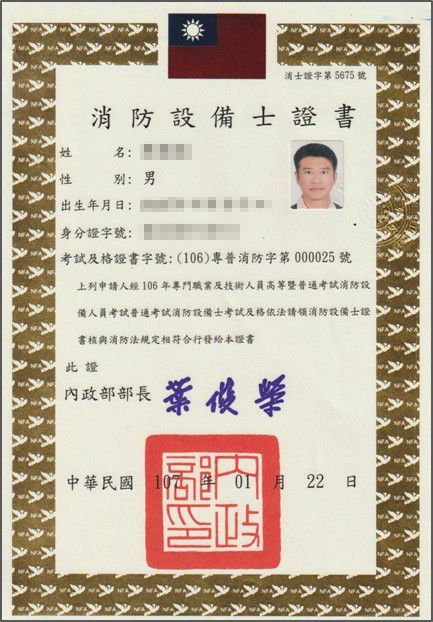 消士證字第 5675 號
消防設備士證書
姓 名:
性 別: 男
出生年月日:
身分證字號:
考試及格證書字號:(106)專普消防字第 000025 號
上列申請人經 106 年專門職業及技術人員高等暨普通考試消防設
備人員考試普通考試消防設備士考試及格依法請領消防設備士證
書核與消防法規定相符合行發給本證書
此 證
內政部部長 葉俊榮
內政部印
中華民國 107 年 01 月 22 日